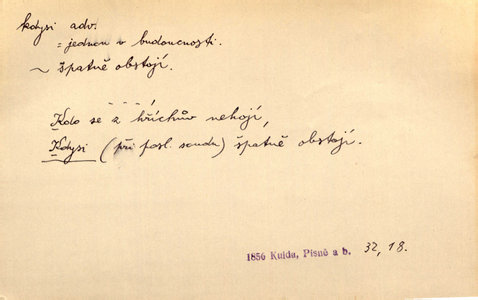 kdysi adv.
= jednou v budoucnosti.
~ špatně obstojí.
Kdo se z hříchův nehojí,
Kdysi (při posl. soudu) špatně obstojí.
1856 Kulda, Písně a b. 32, 18.